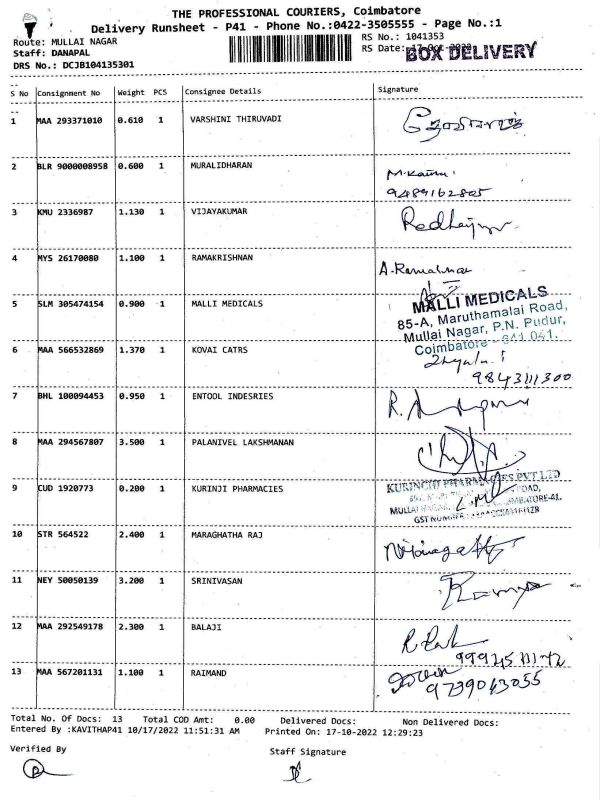 THE PROFESSIONAL COURIERS, Coimbatore
Delivery Runsheet - P41 - Phone No.:0422-3505555 - Page No.:1
Route: MULLAI NAGAR
RS No.: 1041353
Staff: DANAPAL
RS Date: 17-Oct-2022
BOX DELIVERY
DRS No.: DCJB104135301
S No Consignment No Weight PCS Consignee Details Signature
1 MAA 293371010 0.610 1 VARSHINI THIRUVADI
2 BLR 9000008958 0.600 1 MURALIDHARAN
9489162805
3 KMU 2336987 1.130 1 VIJAYAKUMAR
4 MYS 26170080 1.100 1 RAMAKRISHNAN
5 SLM 305474154 0.900 1 MALLI MEDICALS
MALLI MEDICALS
85-A, Maruthamalai Road,
Mullai Nagar, P.N. Pudur,
Coimbatore - 641 041.
6 MAA 566532869 1.370 1 KOVAI CATRS
9843111300
7 BHL 100094453 0.950 1 ENTOOL INDESRIES
8 MAA 294567807 3.500 1 PALANIVEL LAKSHMANAN
9 CUD 1920773 0.200 1 KURINJI PHARMACIES
KURINCHI PHARMACIES PVT LTD
10 STR 564522 2.400 1 MARAGHATHA RAJ
11 NEY 50050139 3.200 1 SRINIVASAN
12 MAA 292549178 2.300 1 BALAJI
13 MAA 567201131 1.100 1 RAIMAND
Total No. Of Docs: 13 Total COD Amt: 0.00 Delivered Docs: Non Delivered Docs:
Entered By :KAVITHAP41 10/17/2022 11:51:31 AM Printed On: 17-10-2022 12:29:23
Verified By
Staff Signature